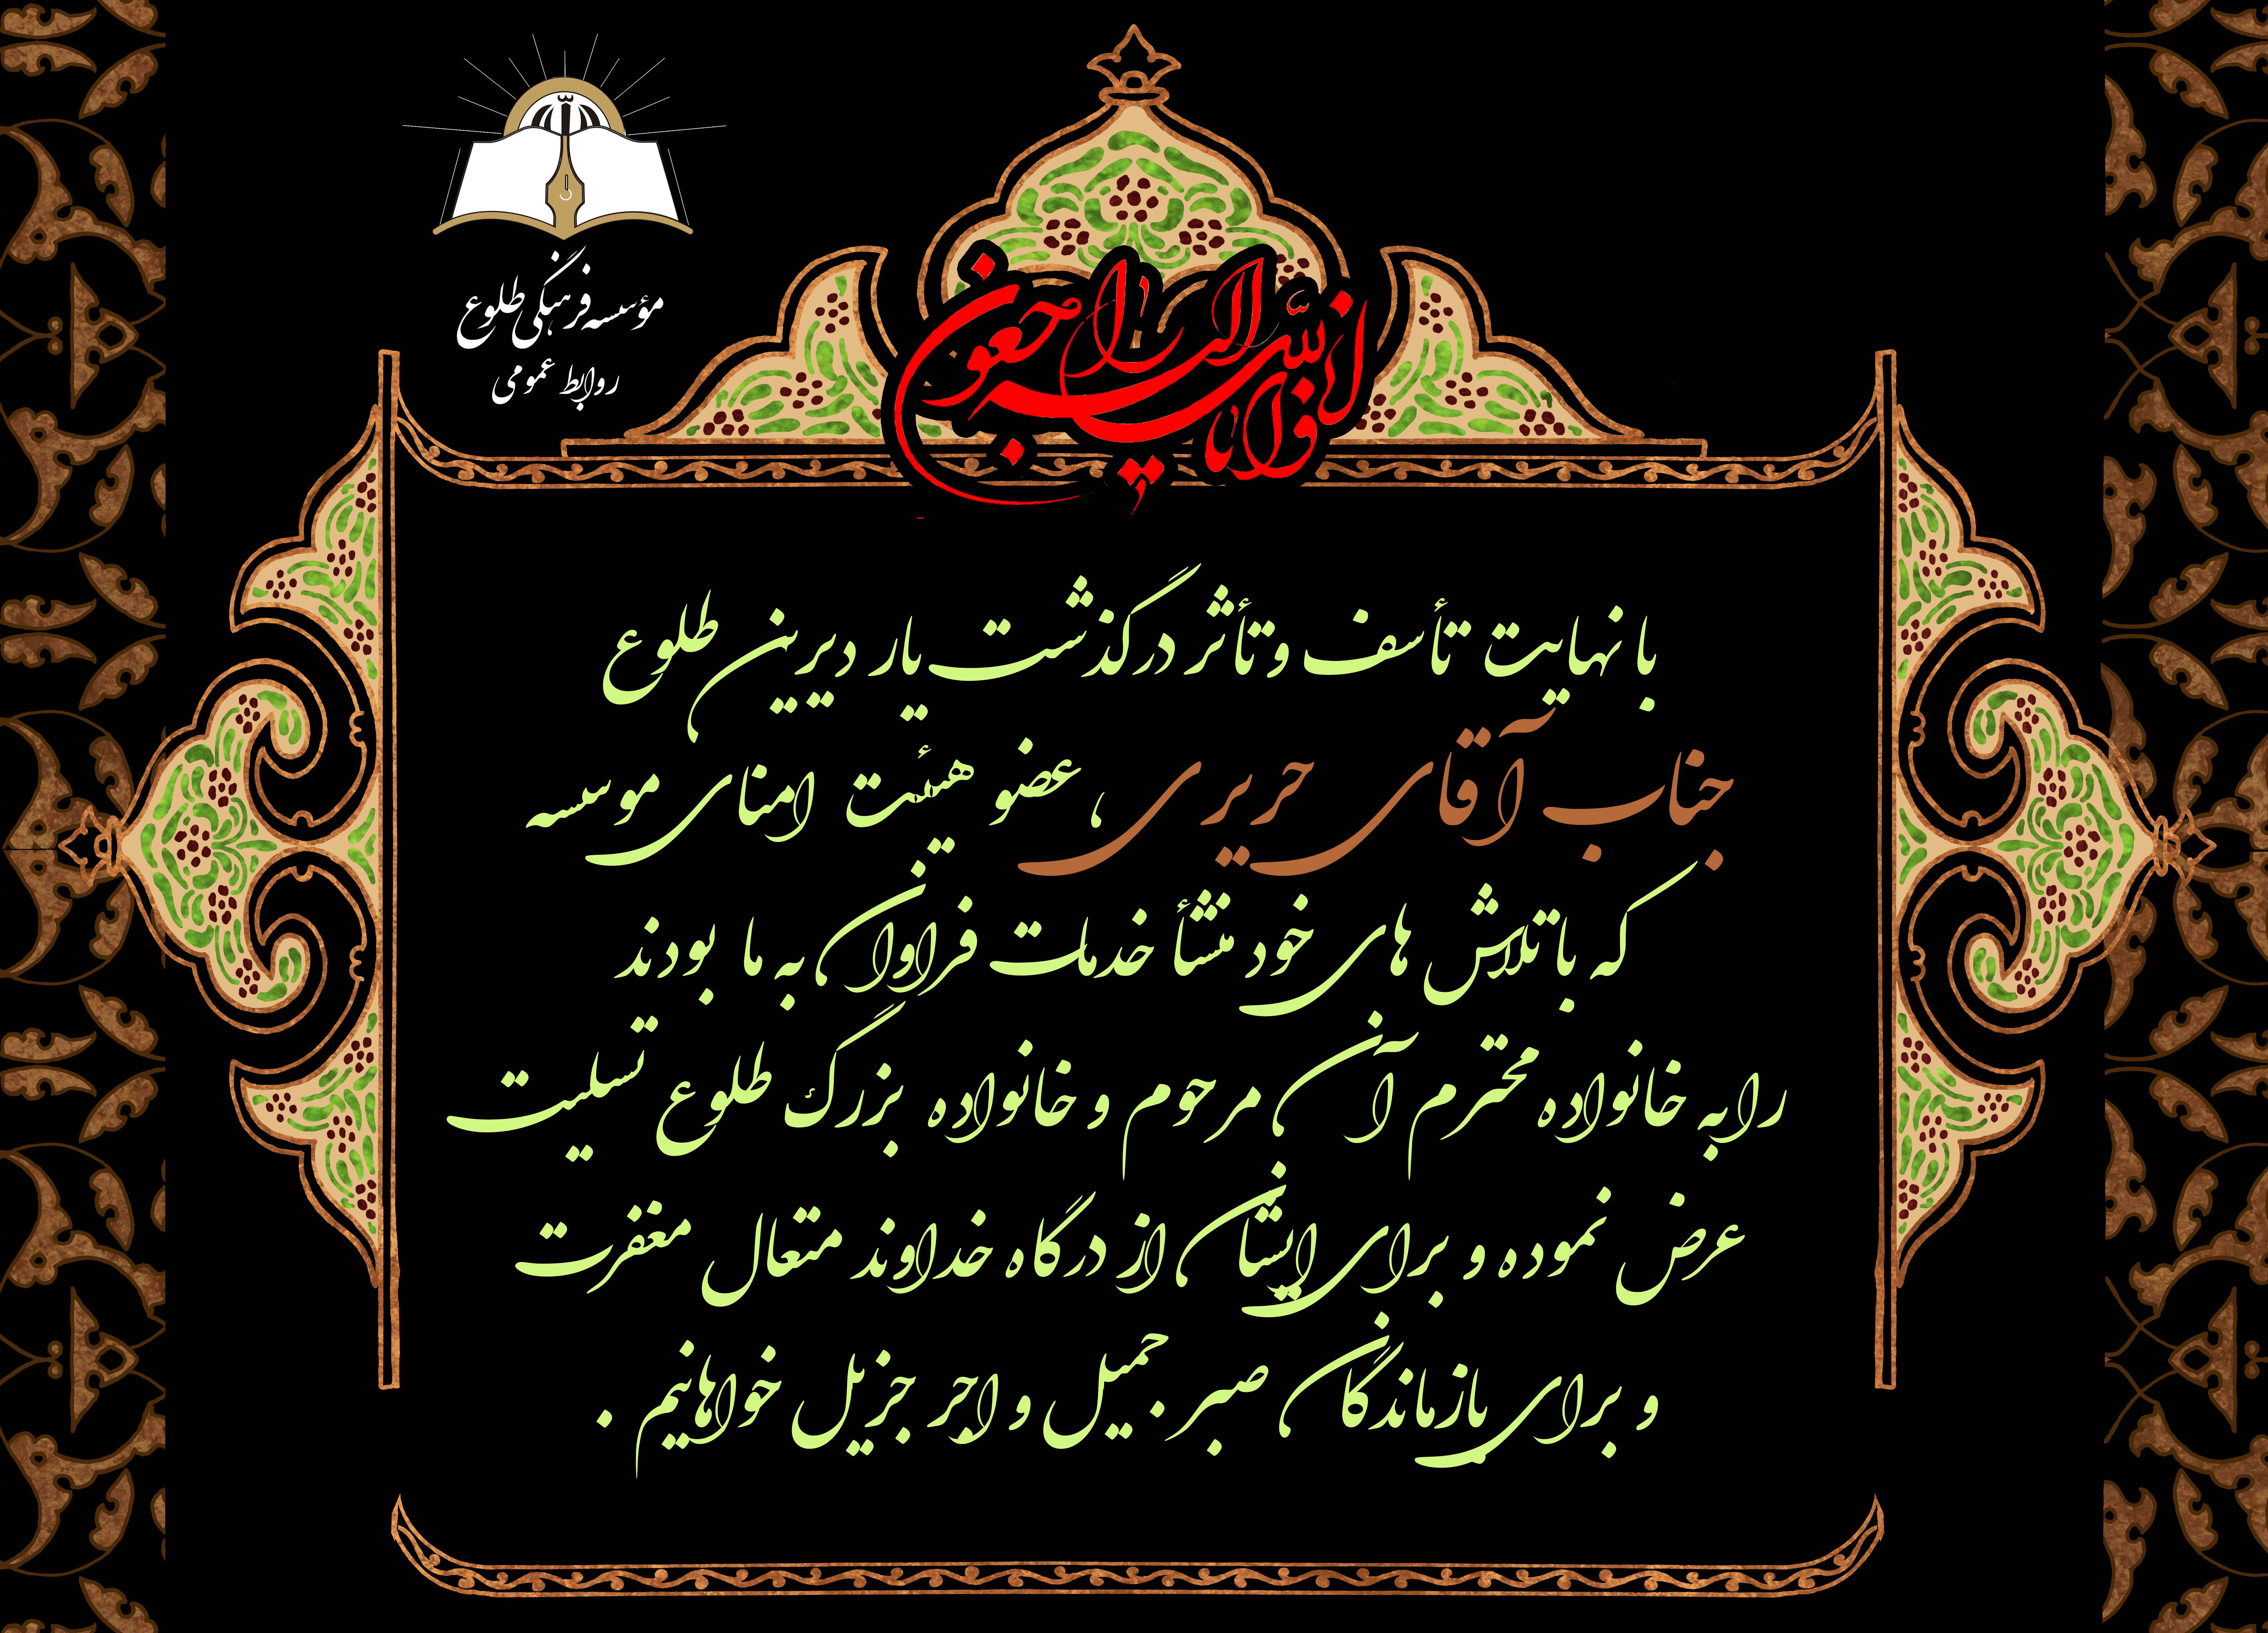 مؤسسه فرهنگی طلوع
روابط عمومی
انا لله و انا الیه راجعون
با نهایت تأسف و تأثر درگذشت یار دیرین طلوع
جناب آقای حریری ، عضو هیئت امنای موسسه
که با تلاش های خود منشأ خدمات فراوان به ما بودند
را به خانواده محترم آن مرحوم و خانواده بزرگ طلوع تسلیت
عرض نموده و برای ایشان از درگاه خداوند متعال مغفرت
و برای بازماندگان صبر جمیل و اجر جزیل خواهانیم .